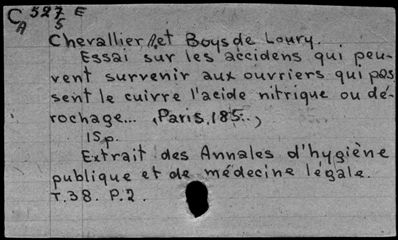 C 527 E
A 5
Chevallier A. et Boys de Loury.
Essai sur les accidens qui peu-
vent survenir aux ouvriers qui pas
sent le cuivre l'acide nitrique ou dé-
rochage... (Paris, 185..,
15 p.
Extrait des Annales d'hygiène
publique et de médecine légale.
T.38. P.2.